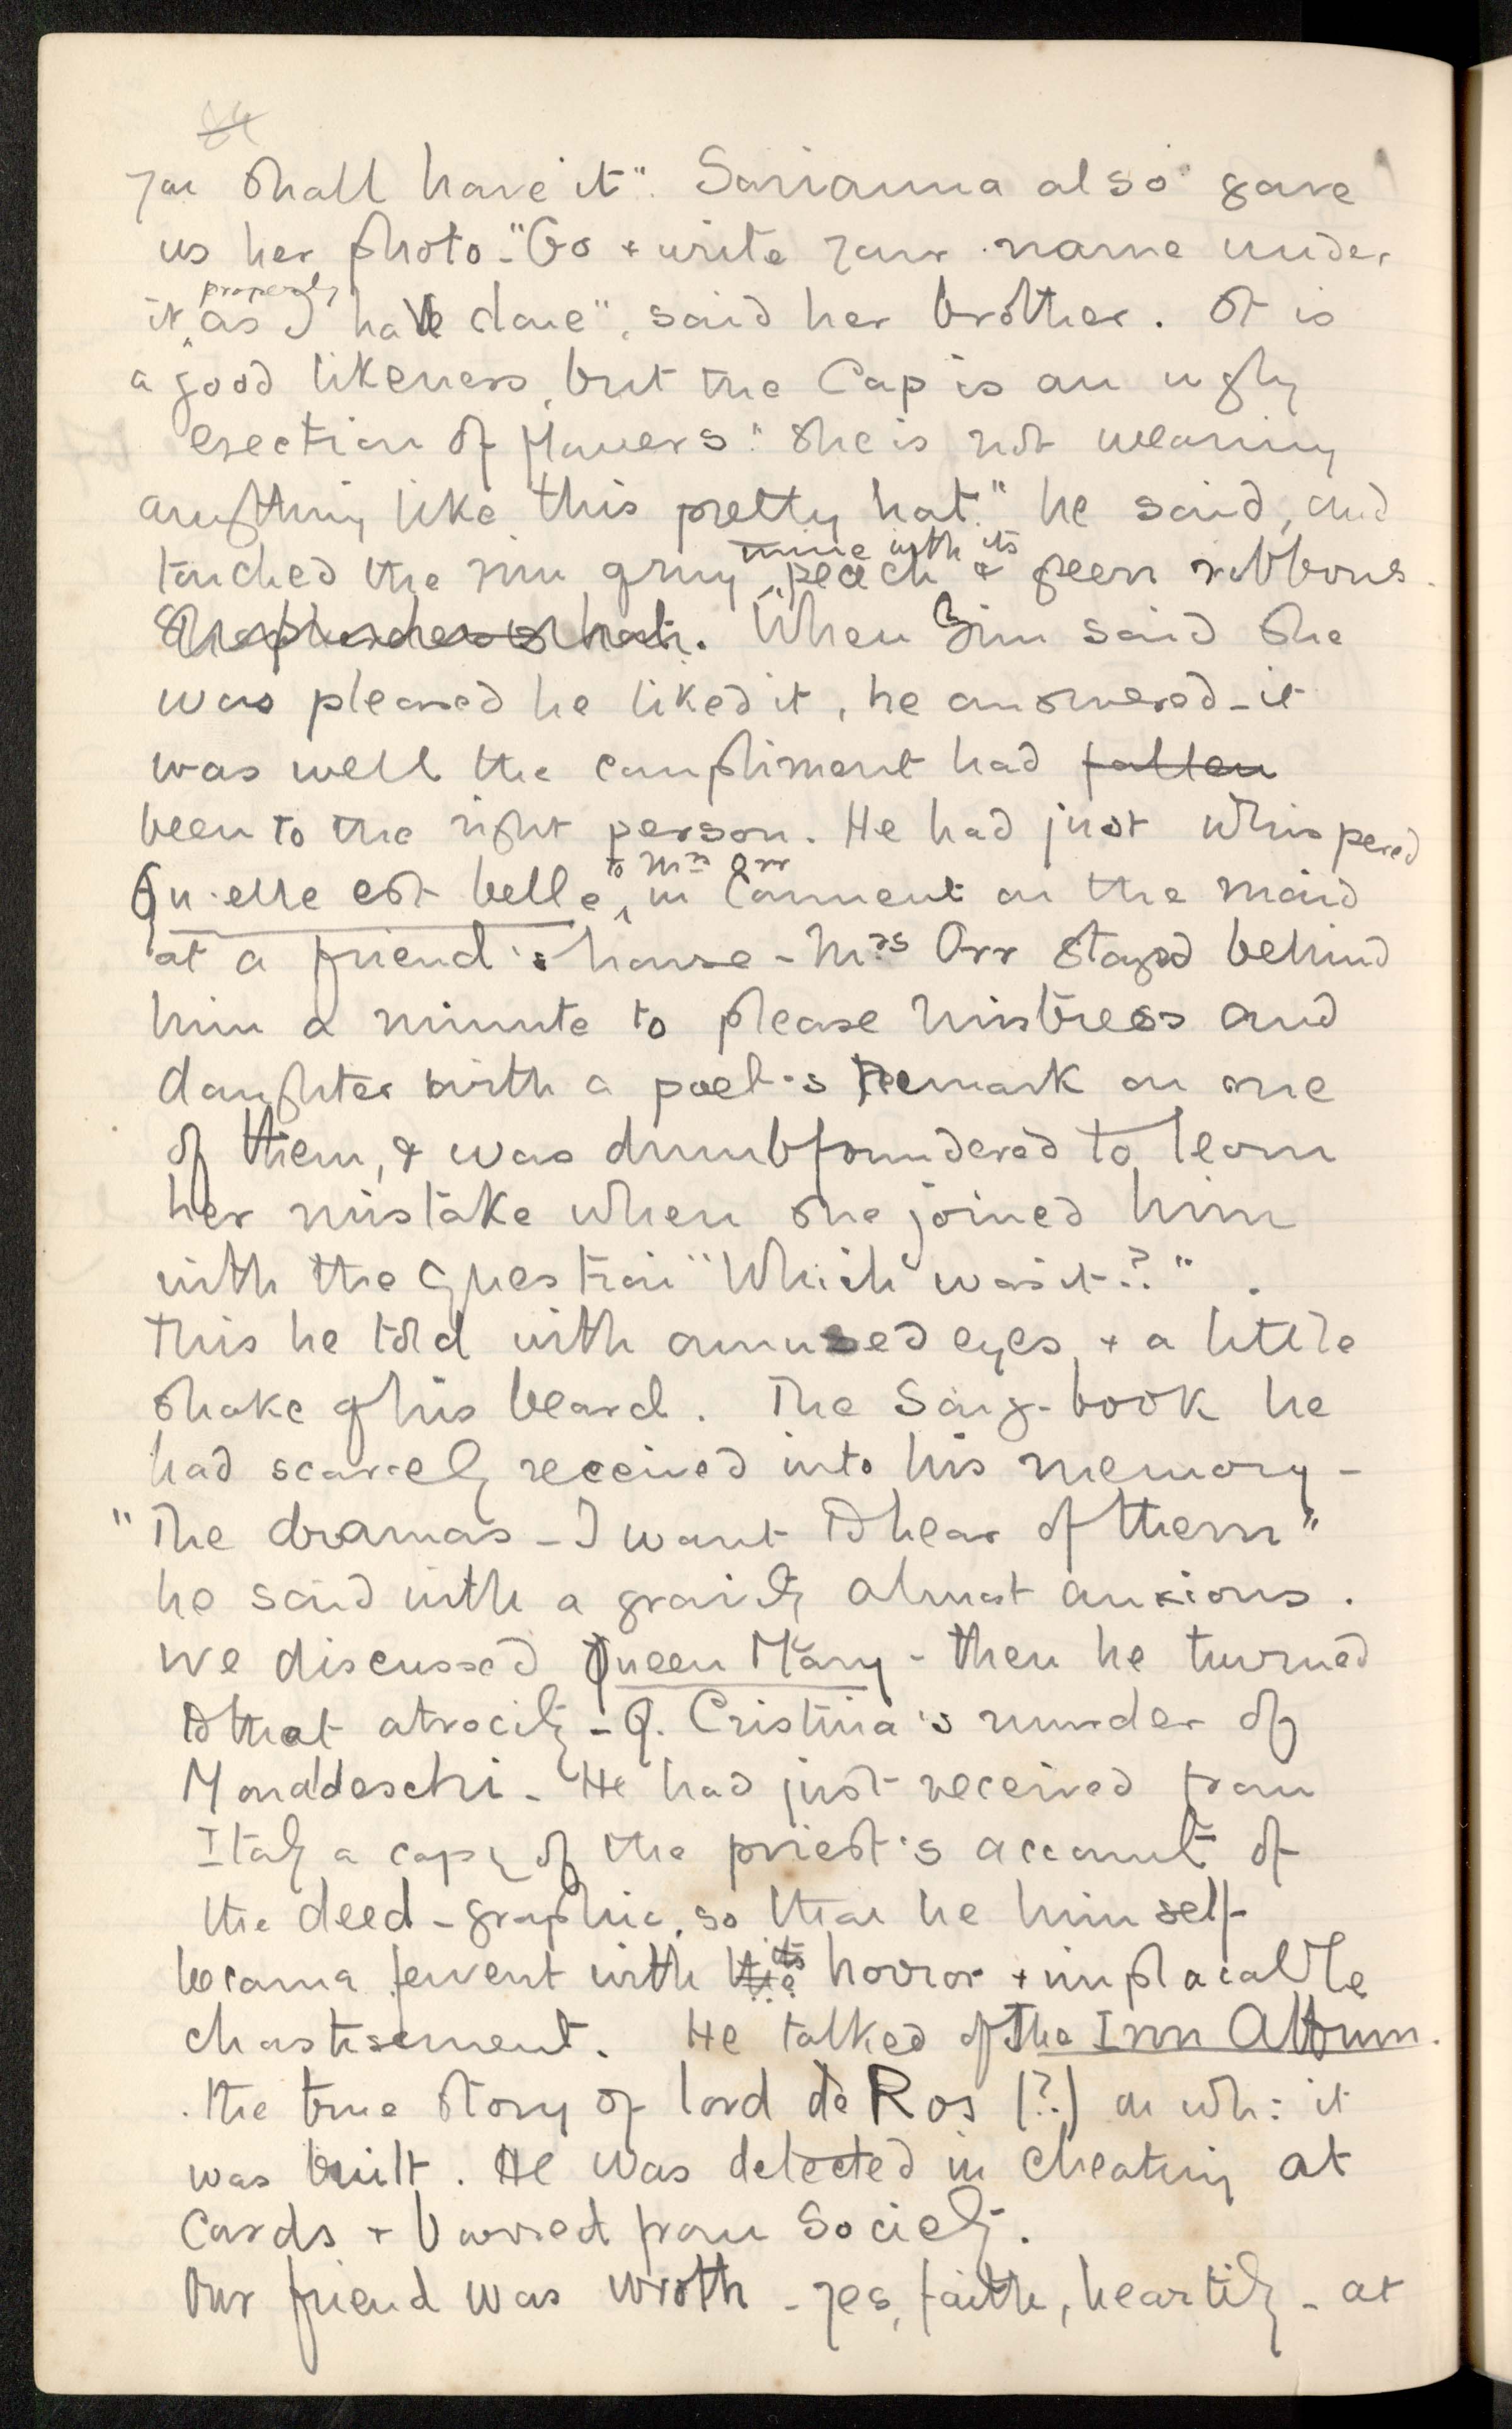 you shall have it". Sarianna also gave
us her photo - "Go + write your name under
it properly as I have done", said her brother. It is
a good likeness, but the Cap is an ugly
erection of flowers: "She is not wearing
anything like this pretty hat." he said, and
touched the rim gray mine with its peach & green ribbons.
When Sim said she
was pleased he liked it, he answered - it
was well the compliment had fallen
been to the right person. He had just whispered
Qu'elle est belle to Mrs Orr, in comment on the maid
at a friend's house - Mrs Orr stayed behind
him a minute to please mistress and
daughter with a poet's remark on one
of them, & was dumbfoundered to learn
her mistake when she joined him
with the question "Which was it?".
This he told with amused eyes, + a little
shake of his beard. The Song-book he
had scarcely received into his memory -
"The dramas - I want to hear of them"
he said with a gravity almost anxious.
We discussed Queen Mary - then he turned
to that atrocity - Q. Cristina's murder of
Monaldeschi - He had just received from
Italy a copy of the priest's account of
the deed - graphic, so that he himself
became fervent with its horror + implacable
chastisement. He talked of The Inn Album.
the true story of Lord de Ros (?) on wh: it
was built. He was detected in cheating at
Cards + barred from Society.
Our friend was wroth - yes, faith, heartily - at